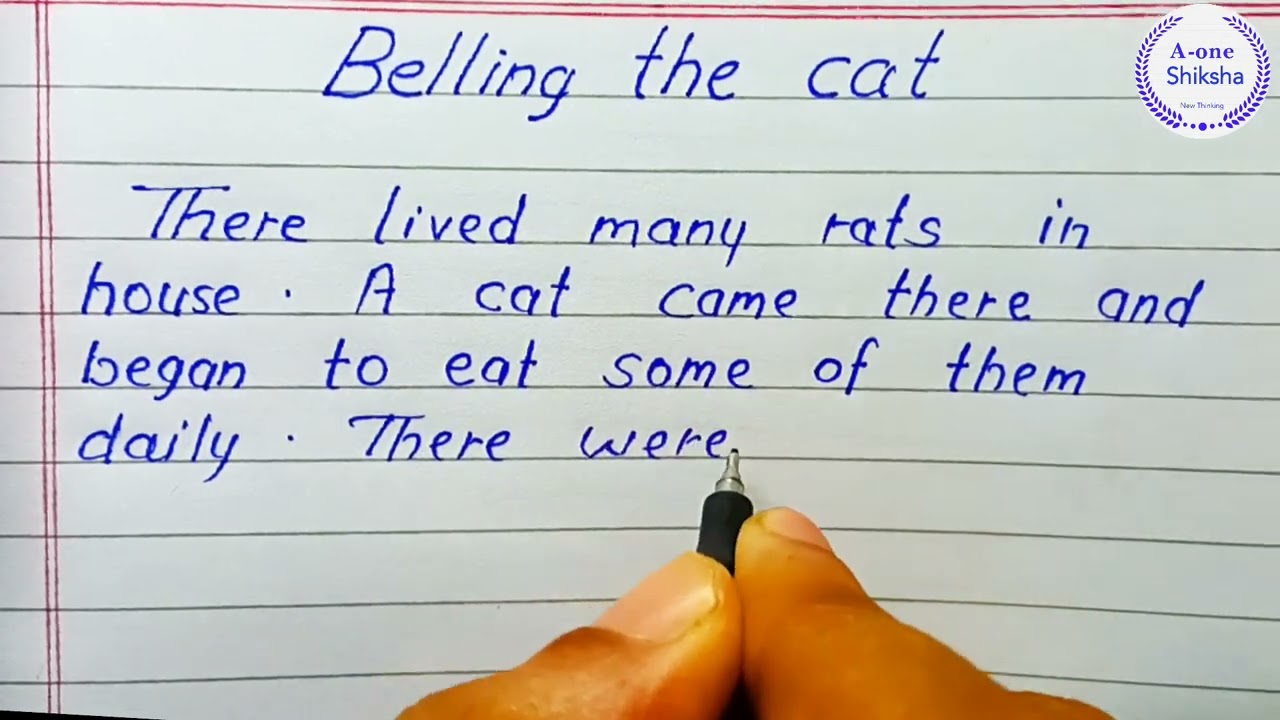 Belling the cat
A-one
Shiksha
New Thinking
There lived many rats in
house. A cat came there and
began to eat some of them
daily. There were